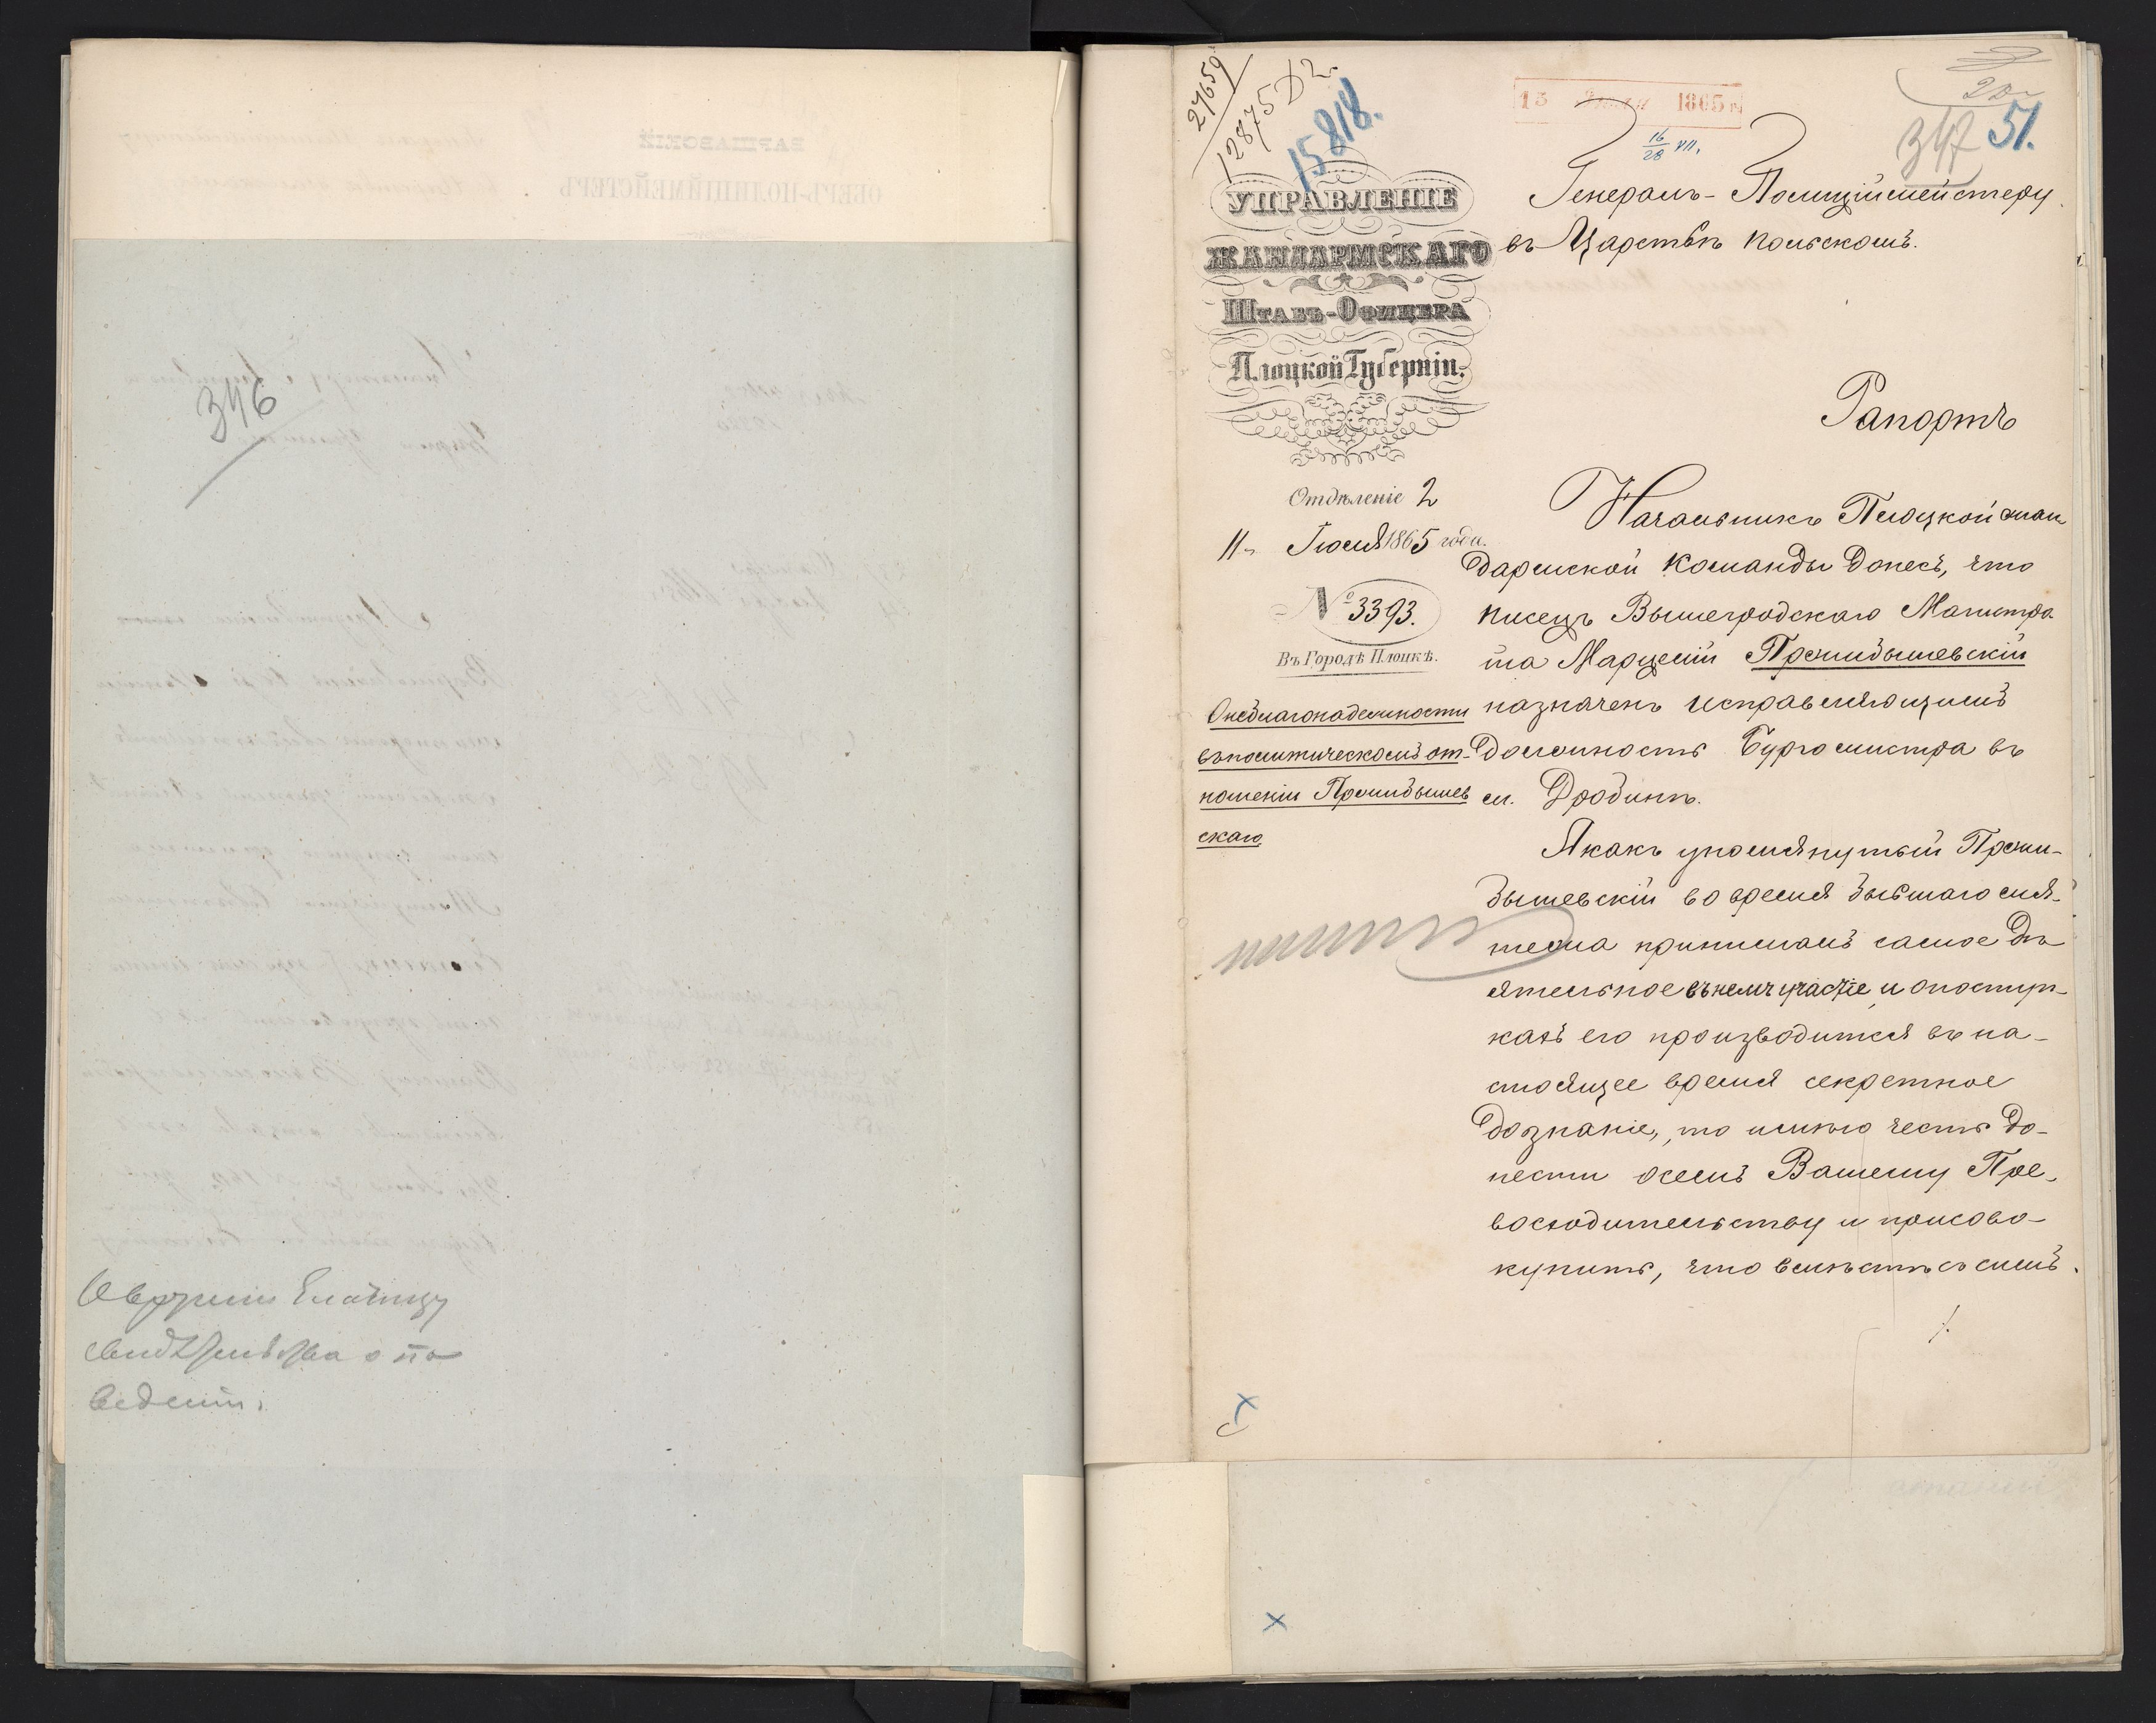 346
свидѣтельства о по
ведении.
27659
12875 D2
15818.
13 Іюля 1865 г.
16/28 VII.
20
347 51.
УПРАВЛЕНІЕ
ЖАНДАРМСКАГО
ШТАБЪ-ОФИЦЕРА
Плоцкой Губерніи.
Отдѣленіе 2
11 Іюля 1865 года.
№ 3393.
Въ Городѣ Плоцкѣ.
О неблагонадежности
въ политическомъ от-
ношеніи Пржидышев
скаго
Генералъ-Полиціймейстеру
въ Царствѣ Польскомъ.
Рапортъ
Начальникъ Плоцкой жан
дармской команды донесъ, что
писецъ Вышегродскаго Магистра
та Марцелій Пржидышевскій
назначенъ исправляющимъ
должность Бургомистра въ
м. Дробинѣ.
А какъ упомянутый Пржи-
дышевскій во время бывшаго мя-
тежа принималъ самое дѣ
ятельное въ немъ участіе и о поступ-
кахъ его производится въ на-
стоящее время секретное
дознаніе, то имѣю честь до-
нести о семъ Вашему Пре-
восходительству и присово-
купить, что вмѣстѣ съ симъ